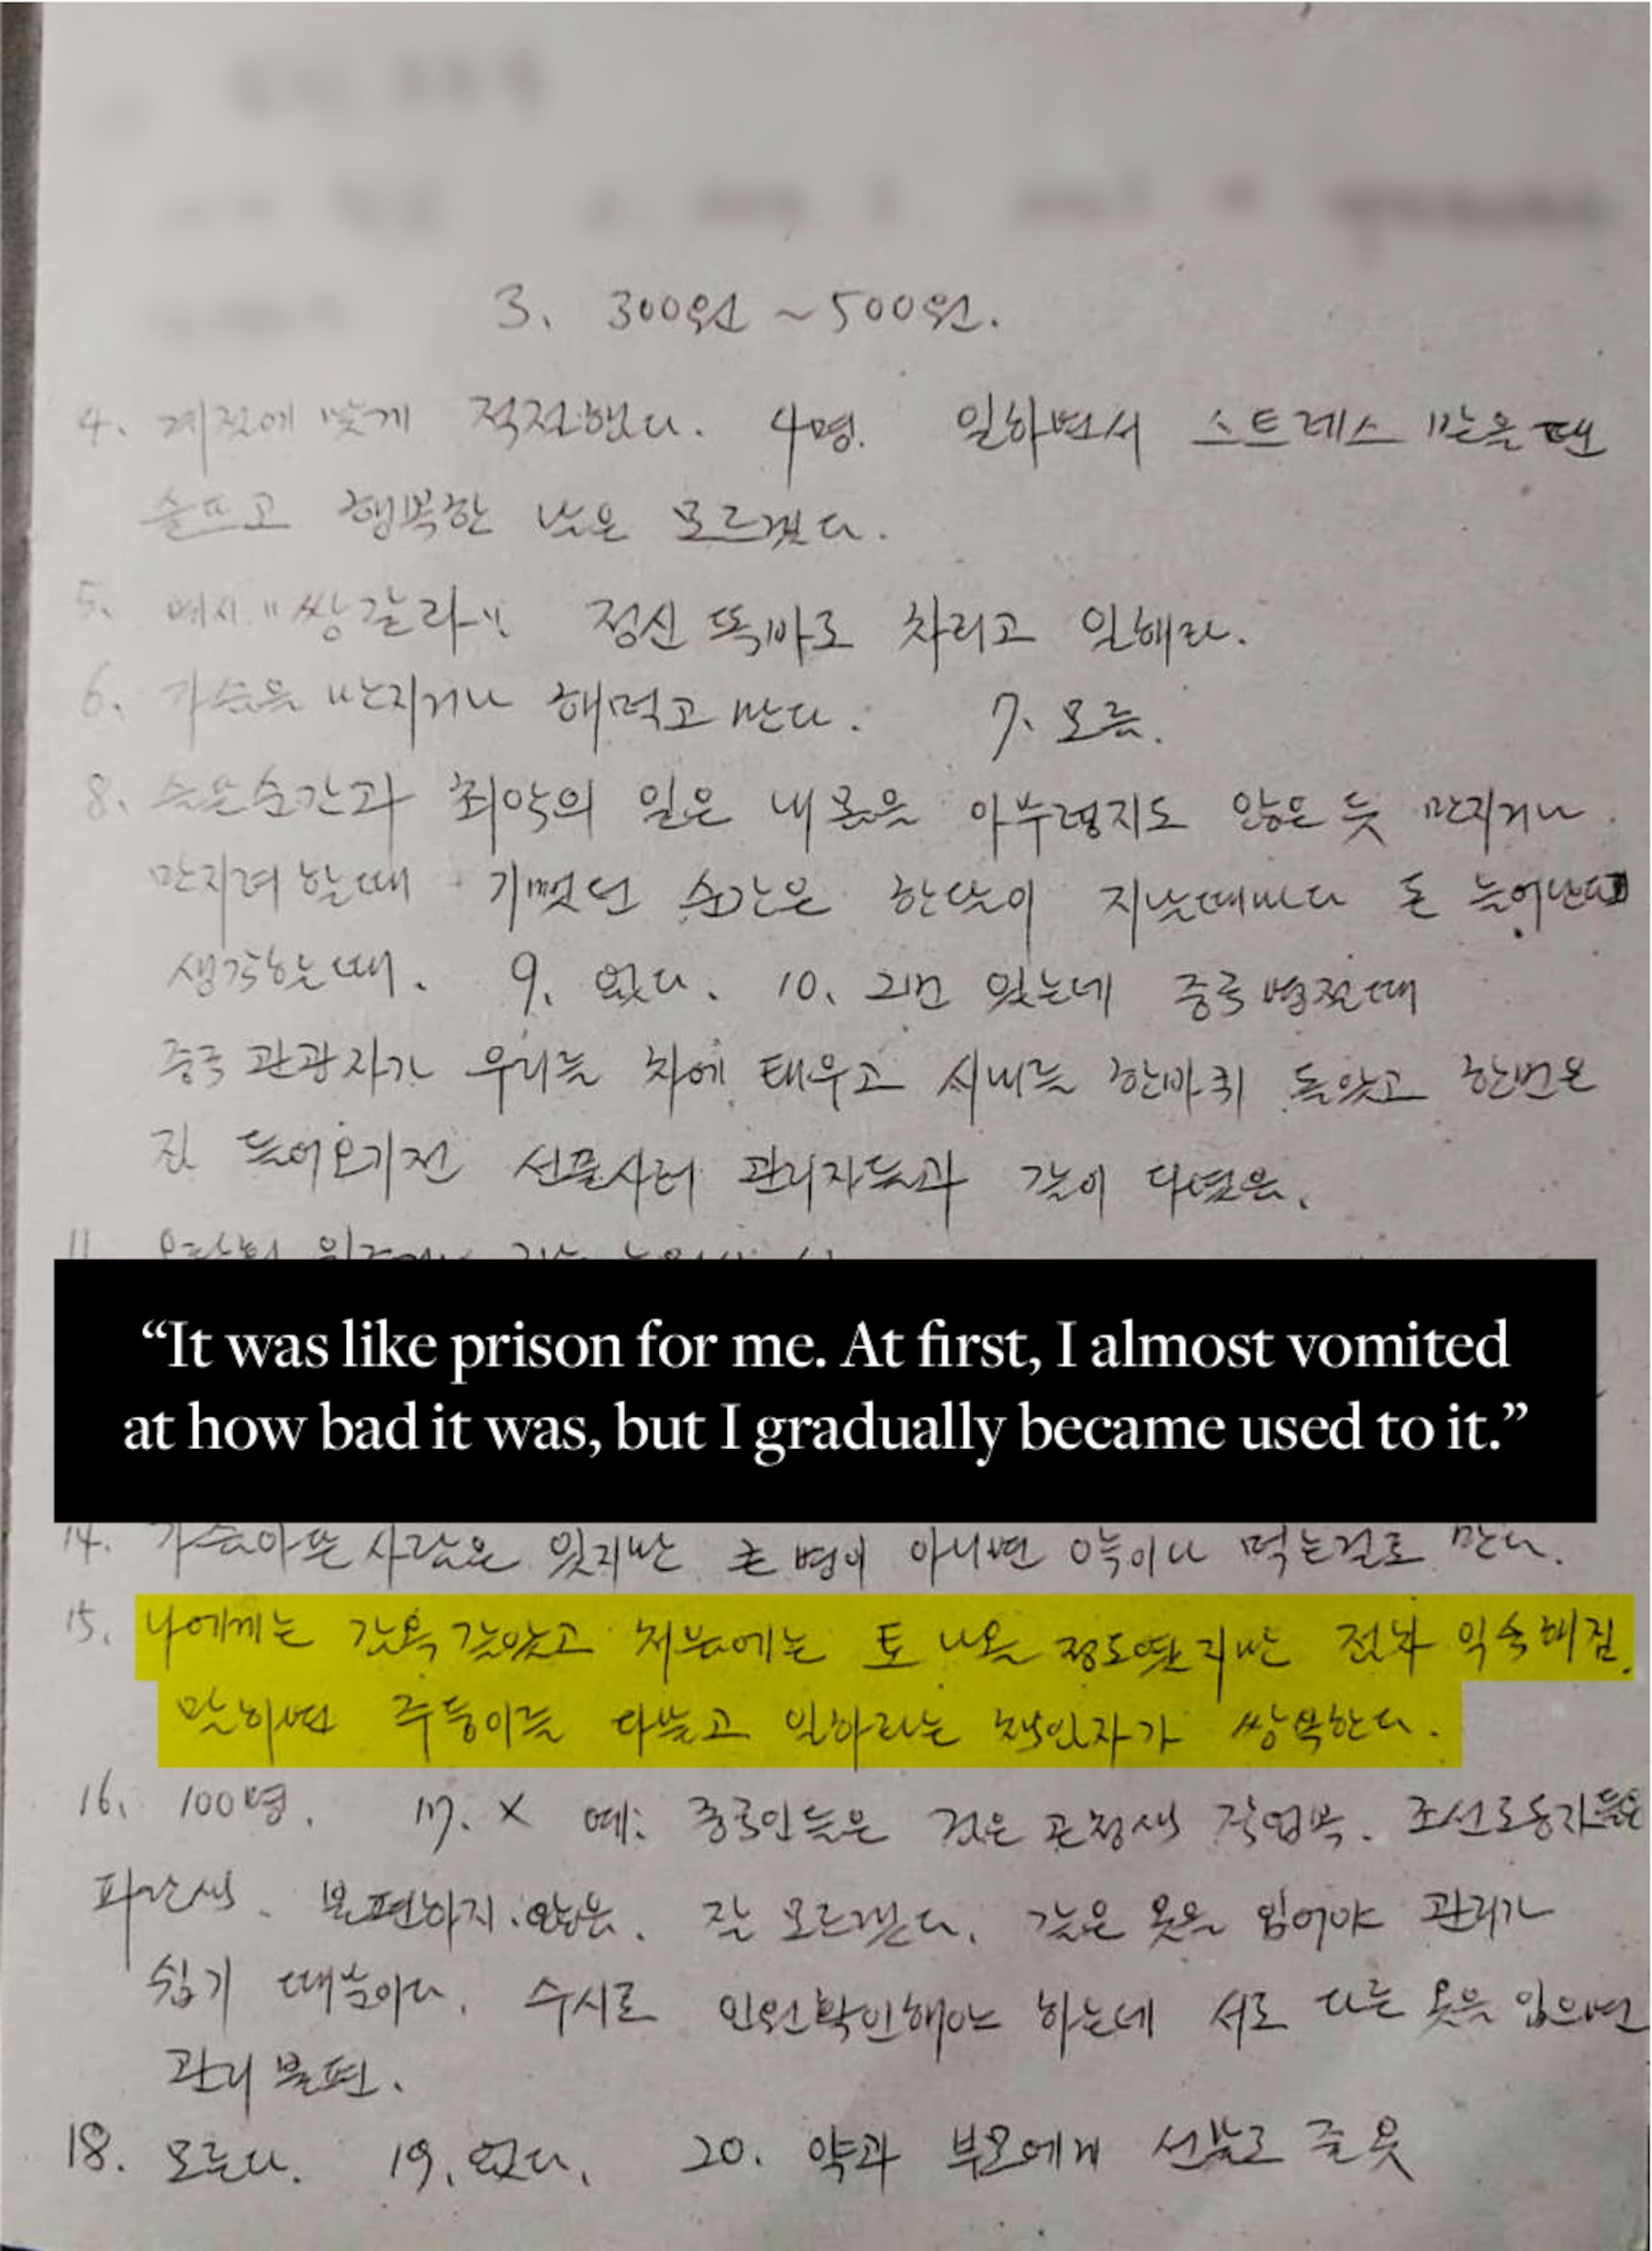 3. 300원 ~ 500원.
4. 계절에 맞게 적절했다. 4명. 일하면서 스트레스 받을 때
슬프고 행복한 날은 모르겠다.
5. 예시 "쌍간나" 정신 똑바로 차리고 일해라.
6. 가슴을 만지거나 해먹고 만다. 7. 모름.
8. 슬픈순간과 최악의 일은 내 몸을 아무렇지도 않은 듯 만지거나
만지려 할때 기뻤던 순간은 한달이 지날때마다 돈 늘어난다고
생각하는 때. 9. 없다. 10. 2번 있는데 중국 명절때
중국 관광자가 우리를 차에 태우고 시내를 한바퀴 돌았고 한번은
집 들어오기전 선물사러 관리자들과 같이 다녔음.
11.
“It was like prison for me. At first, I almost vomited
at how bad it was, but I gradually became used to it.”
14. 가슴아픈 사람은 있지만 큰 병이 아니면 약이나 먹는걸로 만다.
15. 나에게는 감옥 같았고 처음에는 토 나올 정도였지만 점차 익숙해짐.
말하면 주둥이를 다물고 일하라는 책임자가 쌍욕한다.
16. 100명. 17. X 예: 중국인들은 검은 곤청색 작업복. 조선로동자들은
파란색. 불편하지 않음. 잘 모르겠다. 같은 옷을 입어야 관리가
쉽기 때문이다. 수시로 인원확인해야 하는데 서로 다른 옷을 입으면
관리 불편.
18. 모른다. 19. 없다. 20. 약과 부모에게 선물로 줄 옷